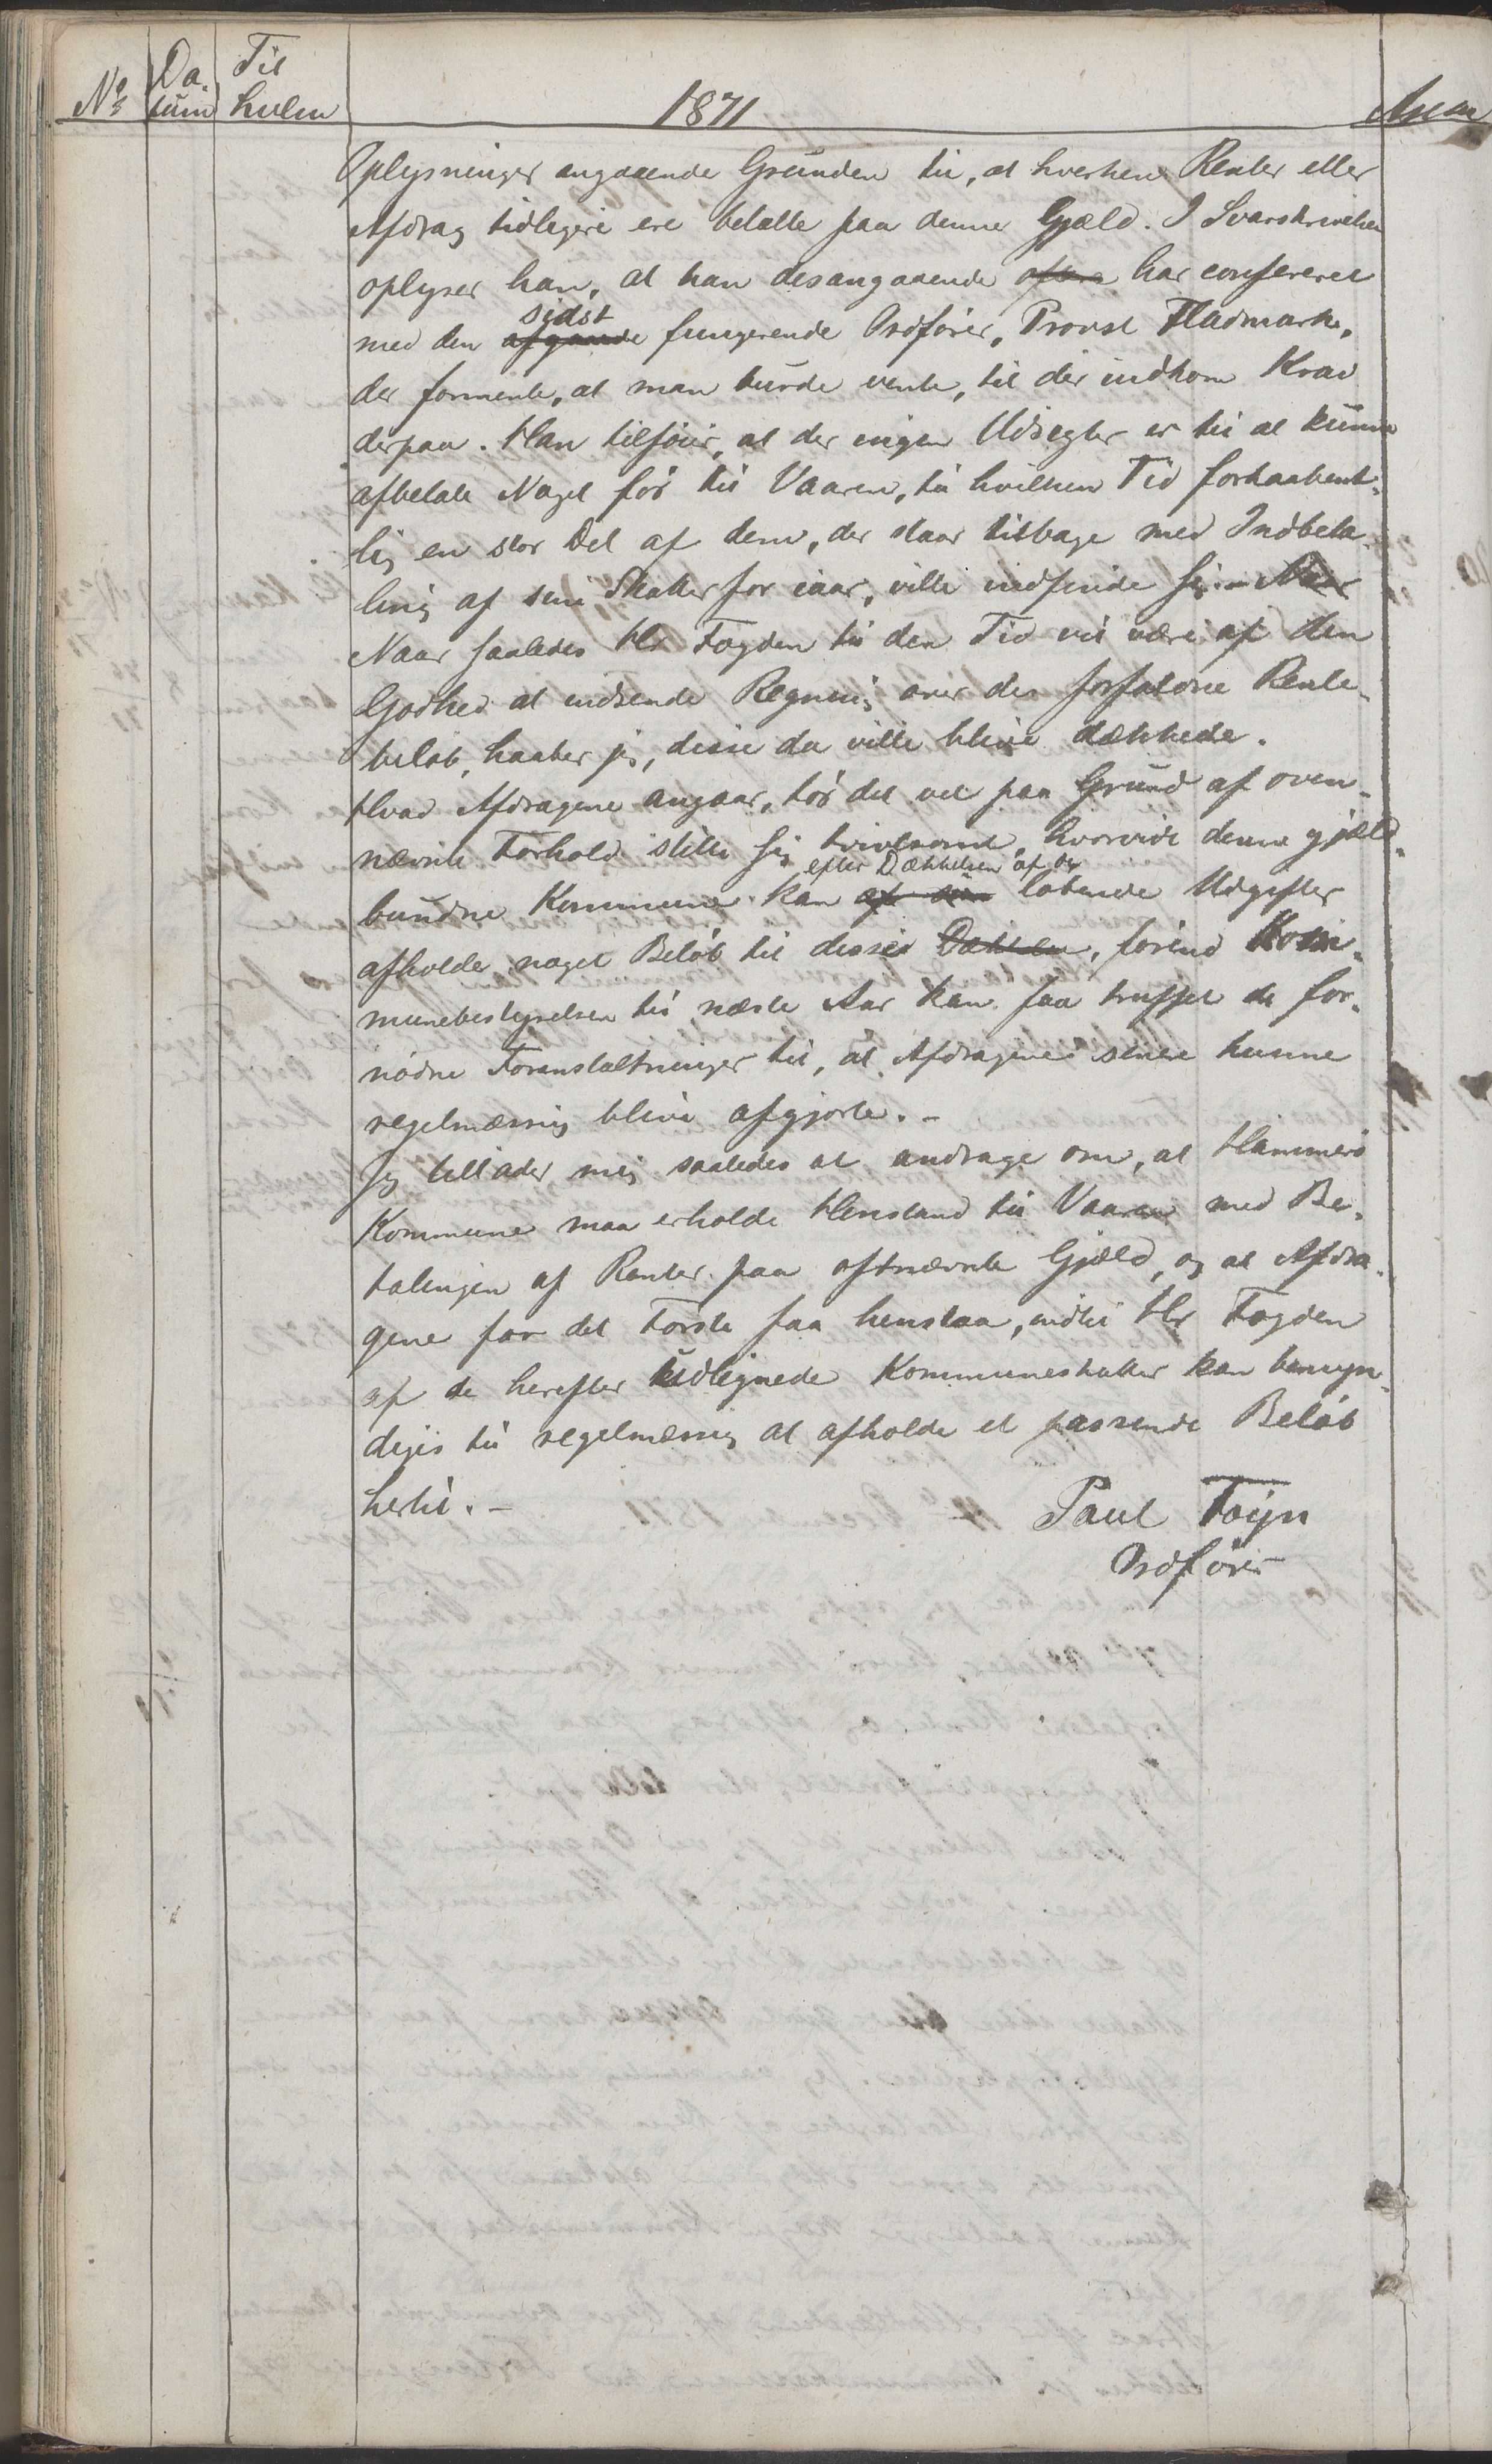 No Da- Til
tum hvem 1871 Anm
Oplysninger angaaende Grunden til, at hverken Renter eller
Afdrag tidligere ere betalte paa denne Gjæld. I Svarskrivelsen
oplyser han, at han desangaaende oftere har confereret
sidst
med den afgaaede fungerende Ordfører, Provst Fladmark,
der formente, at man burde vente, til der indkom Krav
derpaa. Han tilføier, at der ingen Udsigter er til at kunne
afbetale Noget før til Vaaren, til hvilken Tid forhaabent-
lig en stor Del af dem, der staar tilbage med Indbeta-
ling af sine Skatter for iaar, ville indfinde sig. Naar
Naar saaledes Hr Fogden til den Tid vil være af den
Godhed at indsende Regning over det forfaldne Rente-
beløb, haaber jeg, disse da ville blive dækkede.
Hvad Afdragene angaar, tør det vel paa Grund af oven-
nævnte Forhold stille sig tvivlsomt, hvorvidt denne gjæld-
efter Dækkelsen af de
bundne Kommune kan af sin løbende Udgifter
afholde noget Beløb til disses Dækkelse, førend Kom-
munebestyrelsen til næste Aar kan faa truffet de for-
nødne Foranstaltninger til, at Afdragene senere kunne
regelmæssig blive afgjorte. -
Jeg tillader mig saaledes at andrage om, at Hammerø
Kommune maa erholde Henstand til Vaaren med Be-
talingen af Renter paa oftnævnte Gjæld, og at Afdra-
gene for det Første faa henstaa, indtil Hr Fogden
af de herefter udlignede Kommuneskatter kan bemyn-
diges til regelmæssig at afholde et passende Beløb
hertil. -
Paul Foyn
Ordfører